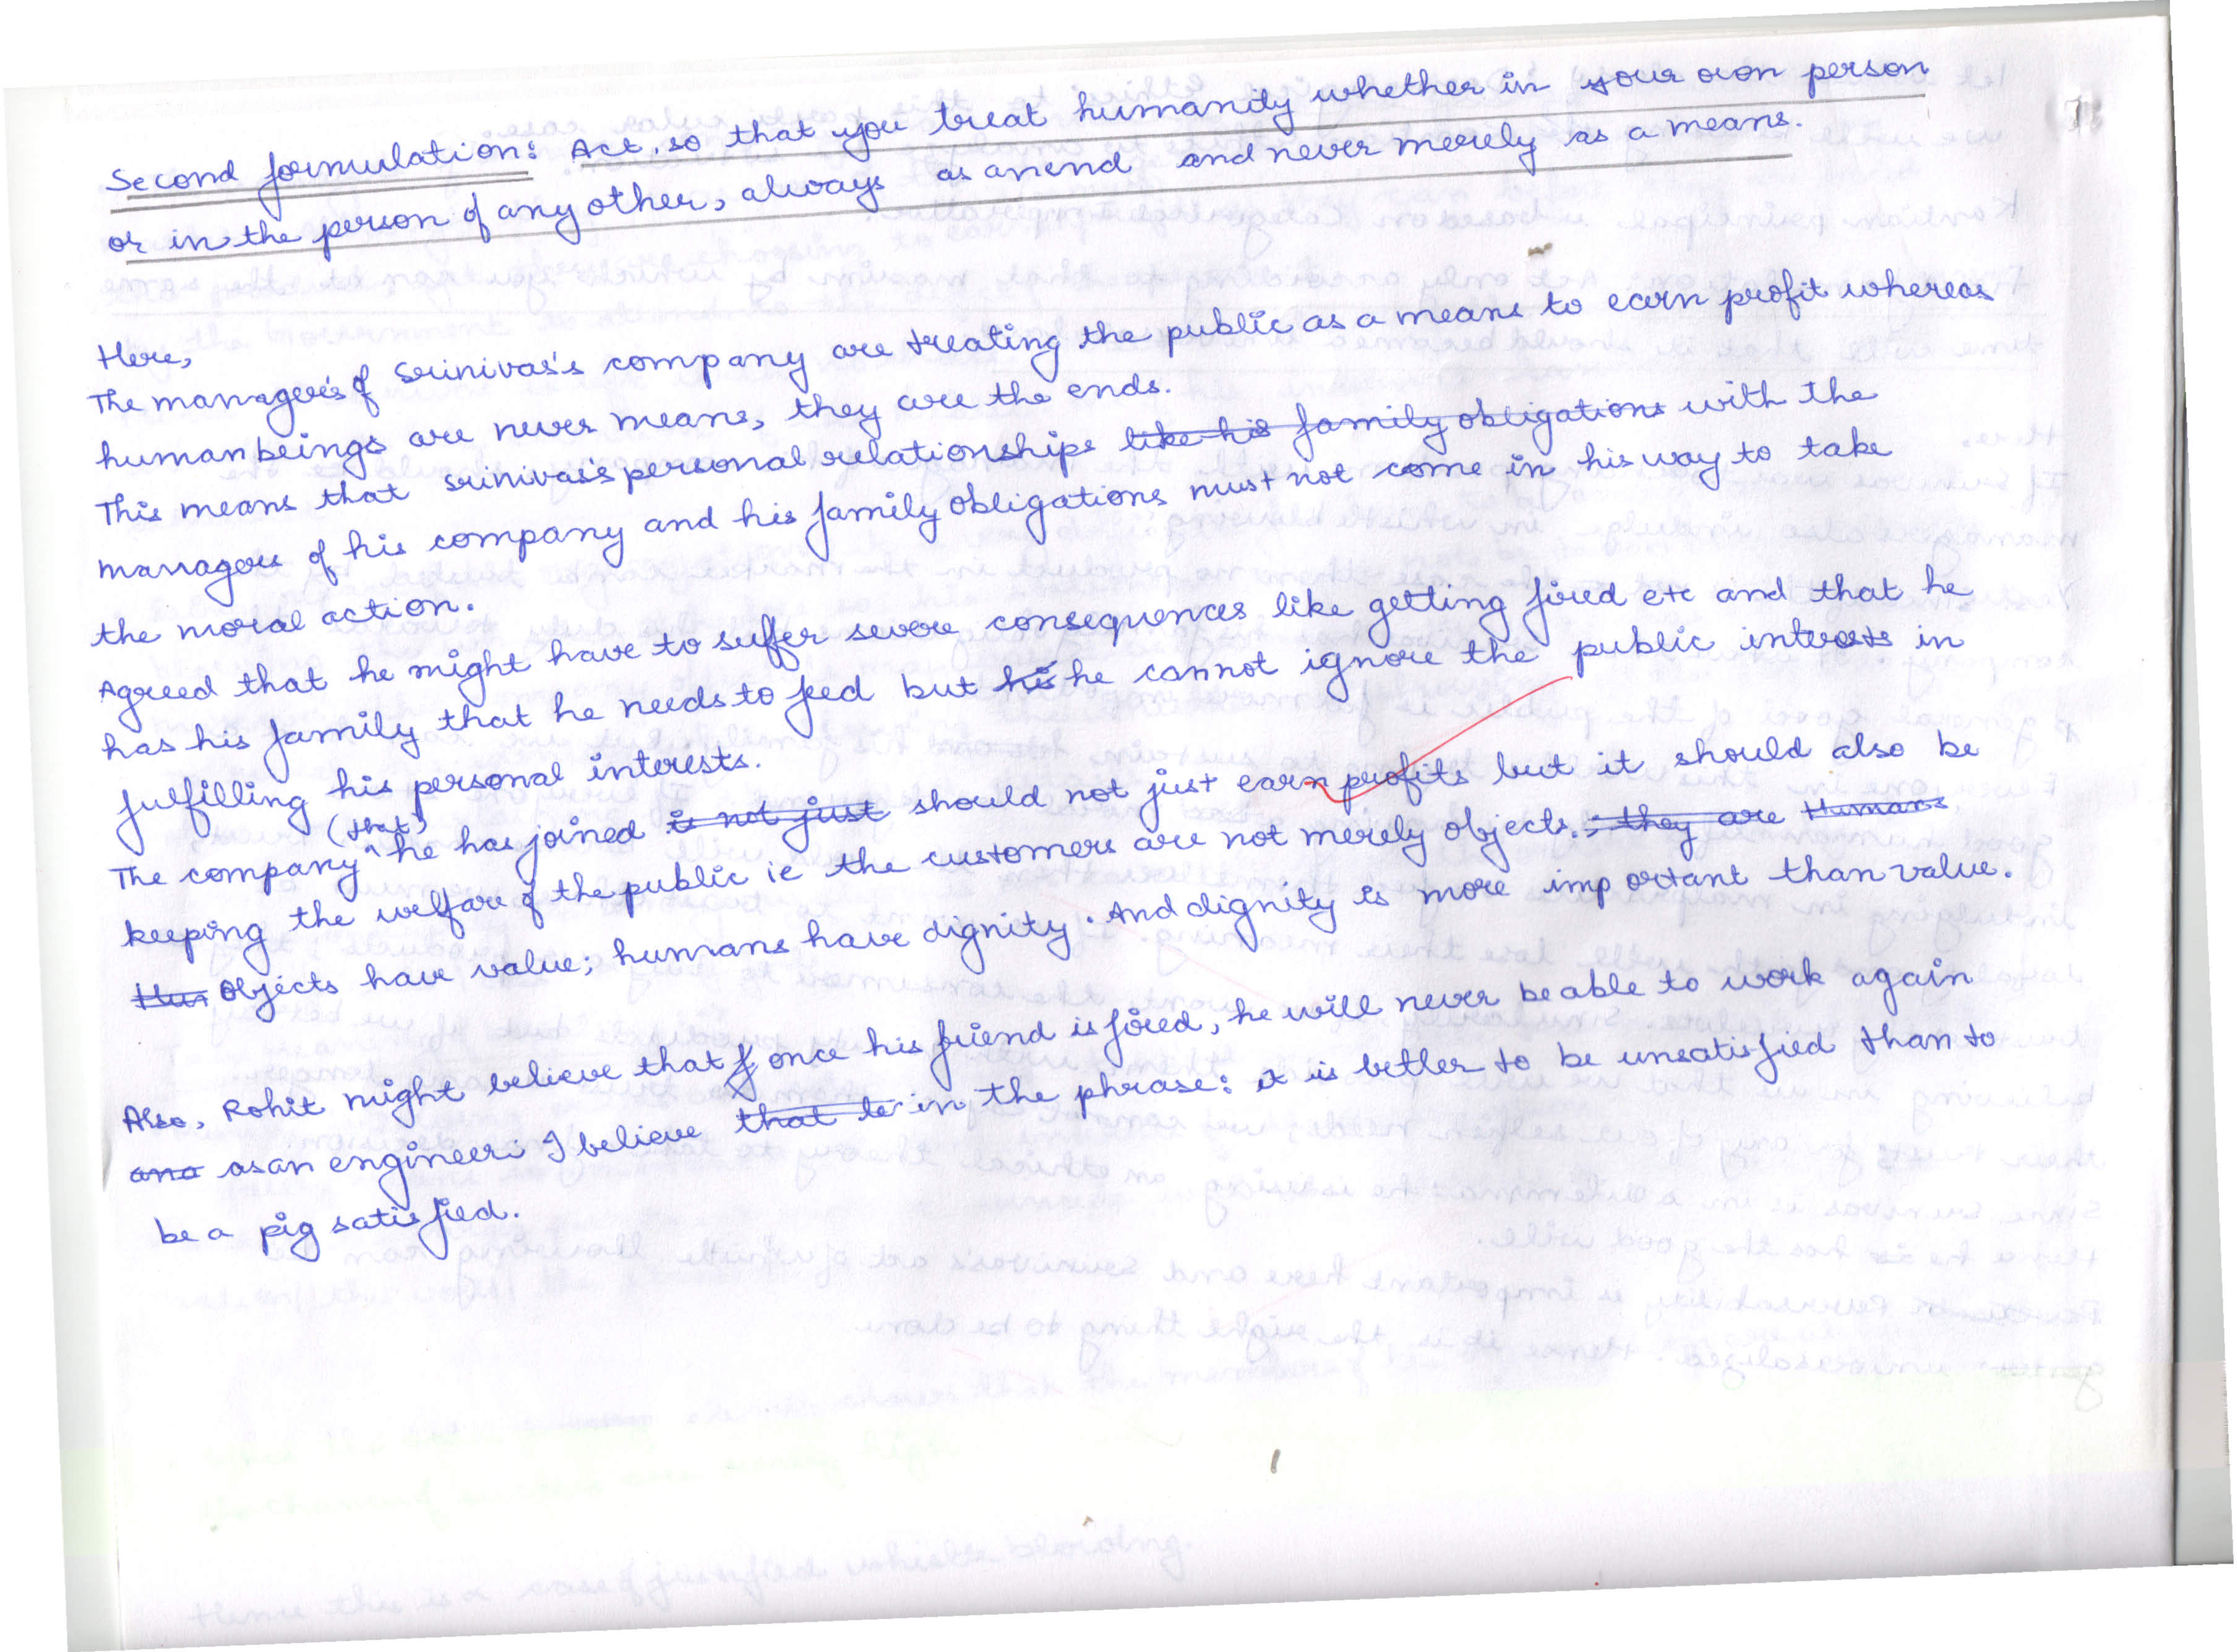 Second formulation: Act, so that you treat humanity whether in your own person
or in the person of any other, always as an end and never merely as a means.
Here,
The managers of Srinivas's company are treating the public as a means to earn profit whereas
human beings are never means, they are the ends.
This means that srinivas's personal relationships like his family obligations with the
managers of his company and his family obligations must not come in his way to take
the moral action.
Agreed that he might have to suffer severe consequences like getting fired etc and that he
has his family that he needs to feed but his he cannot ignore the public interests in
fulfilling his personal interests.
The company (that) he has joined is not just should not just earn profits but it should also be
keeping the welfare of the public ie the customers are not merely objects. ; they are Humans
Hum objects have value; humans have dignity. And dignity is more important than value.
Also, Rohit might believe that if once his friend is fired, he will never be able to work again
and as an engineer: I believe that in the phrase: it is better to be unsatisfied than to
be a pig satisfied.